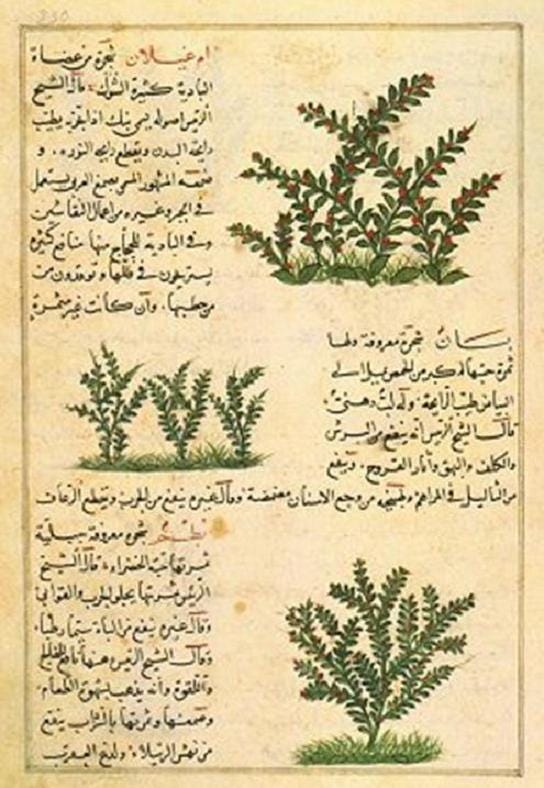 ام غيلان شجرة من عضاة
البادية كثيرة الشوك قال الشيخ
الرئيس اصوله
رايحة البدن ويقطع رايحة النورة و
صمغه المشهور المسمى صمغ العربى يستعمل
فى الحبر وغيره من اعمال النقاشين
وفى البادية للحجاج منها منافع كثيرة
يستريحون فى ظلها ويوقدون من
من حطبها وان كانت غير مثمرة
بان شجرة معروفة ولها
ثمرة حبها اكبر من الحمص يميل الى
البياض طيب الرايحة وله لب دهنى
قال الشيخ الرئيس انه ينفع من البرش
والكلف والبهق واثار القروح وينفع
من الثاليل فى المراهم وطبيخه من وجع الاسنان مضمضة وقال غيره ينفع من الجرب ويقطع الرعاف
بطم شجرة معروفة جبلية
ثمرتها حبة الخضراء قال الشيخ
الرئيس ثمرتها يجلو الجرب والقوابى
وقال غيره ينفع من الباة سيما رطبا
وقال الشيخ الرئيس دهنها نافع للفالج
واللقوة وانه يذهب شهوة الطعام
وصمغها وثمرتها بالشراب ينفع
من نهش الرتيلاء ولدغ العقرب